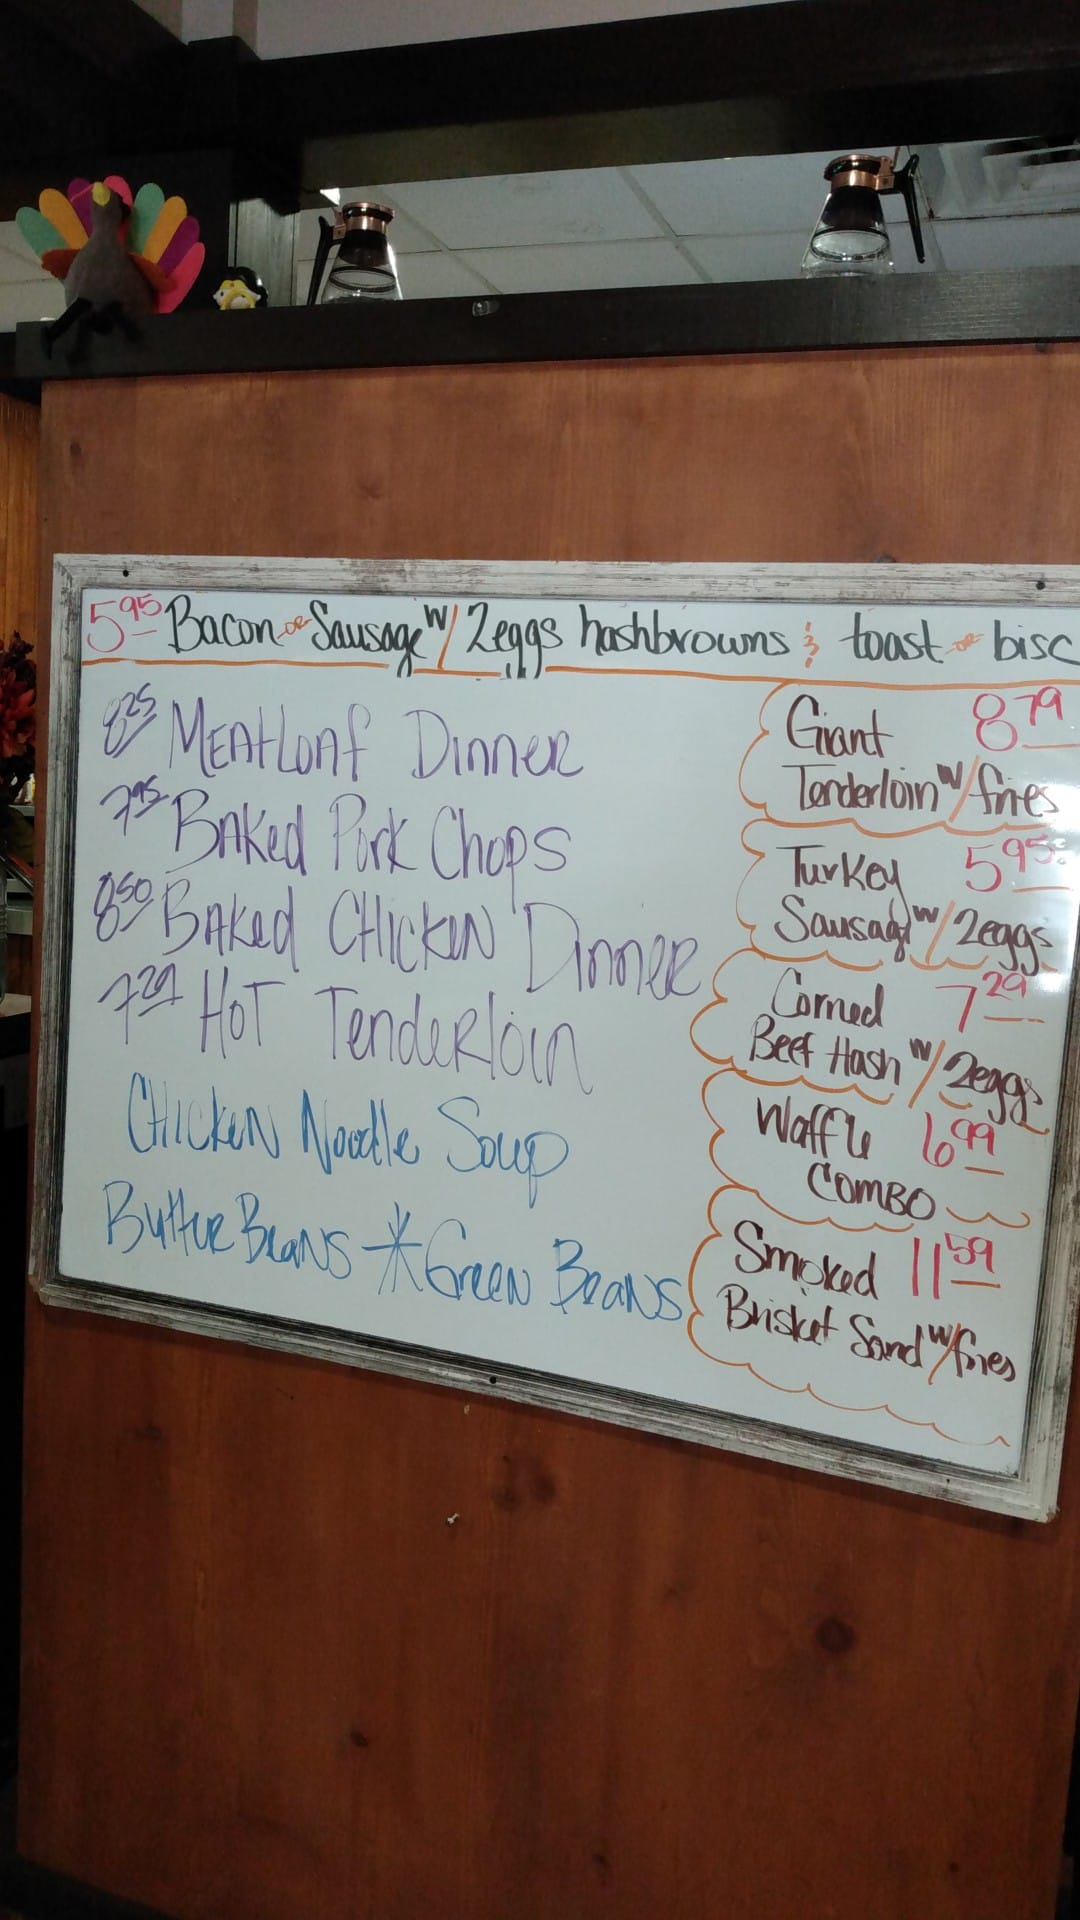 5.95 Bacon or Sausage w/ 2eggs hashbrowns & toast or bisc
8.25 MEAtLOAf DinnER
7.95 BAKed Pork Chops
8.50 BAKed CHICKEN DinnER
7.29 HOT TendERloin
CHICKEN Noodle Soup
ButtER BEANS * GREEN BEANS
Giant 8.79
Tenderloin w/fries
Turkey 5.95
Sausage w/2eggs
Corned 7.29
Beef Hash w/2eggs
Waffle 6.99
COMBO
Smoked 11.59
Brisket Sand w/fries